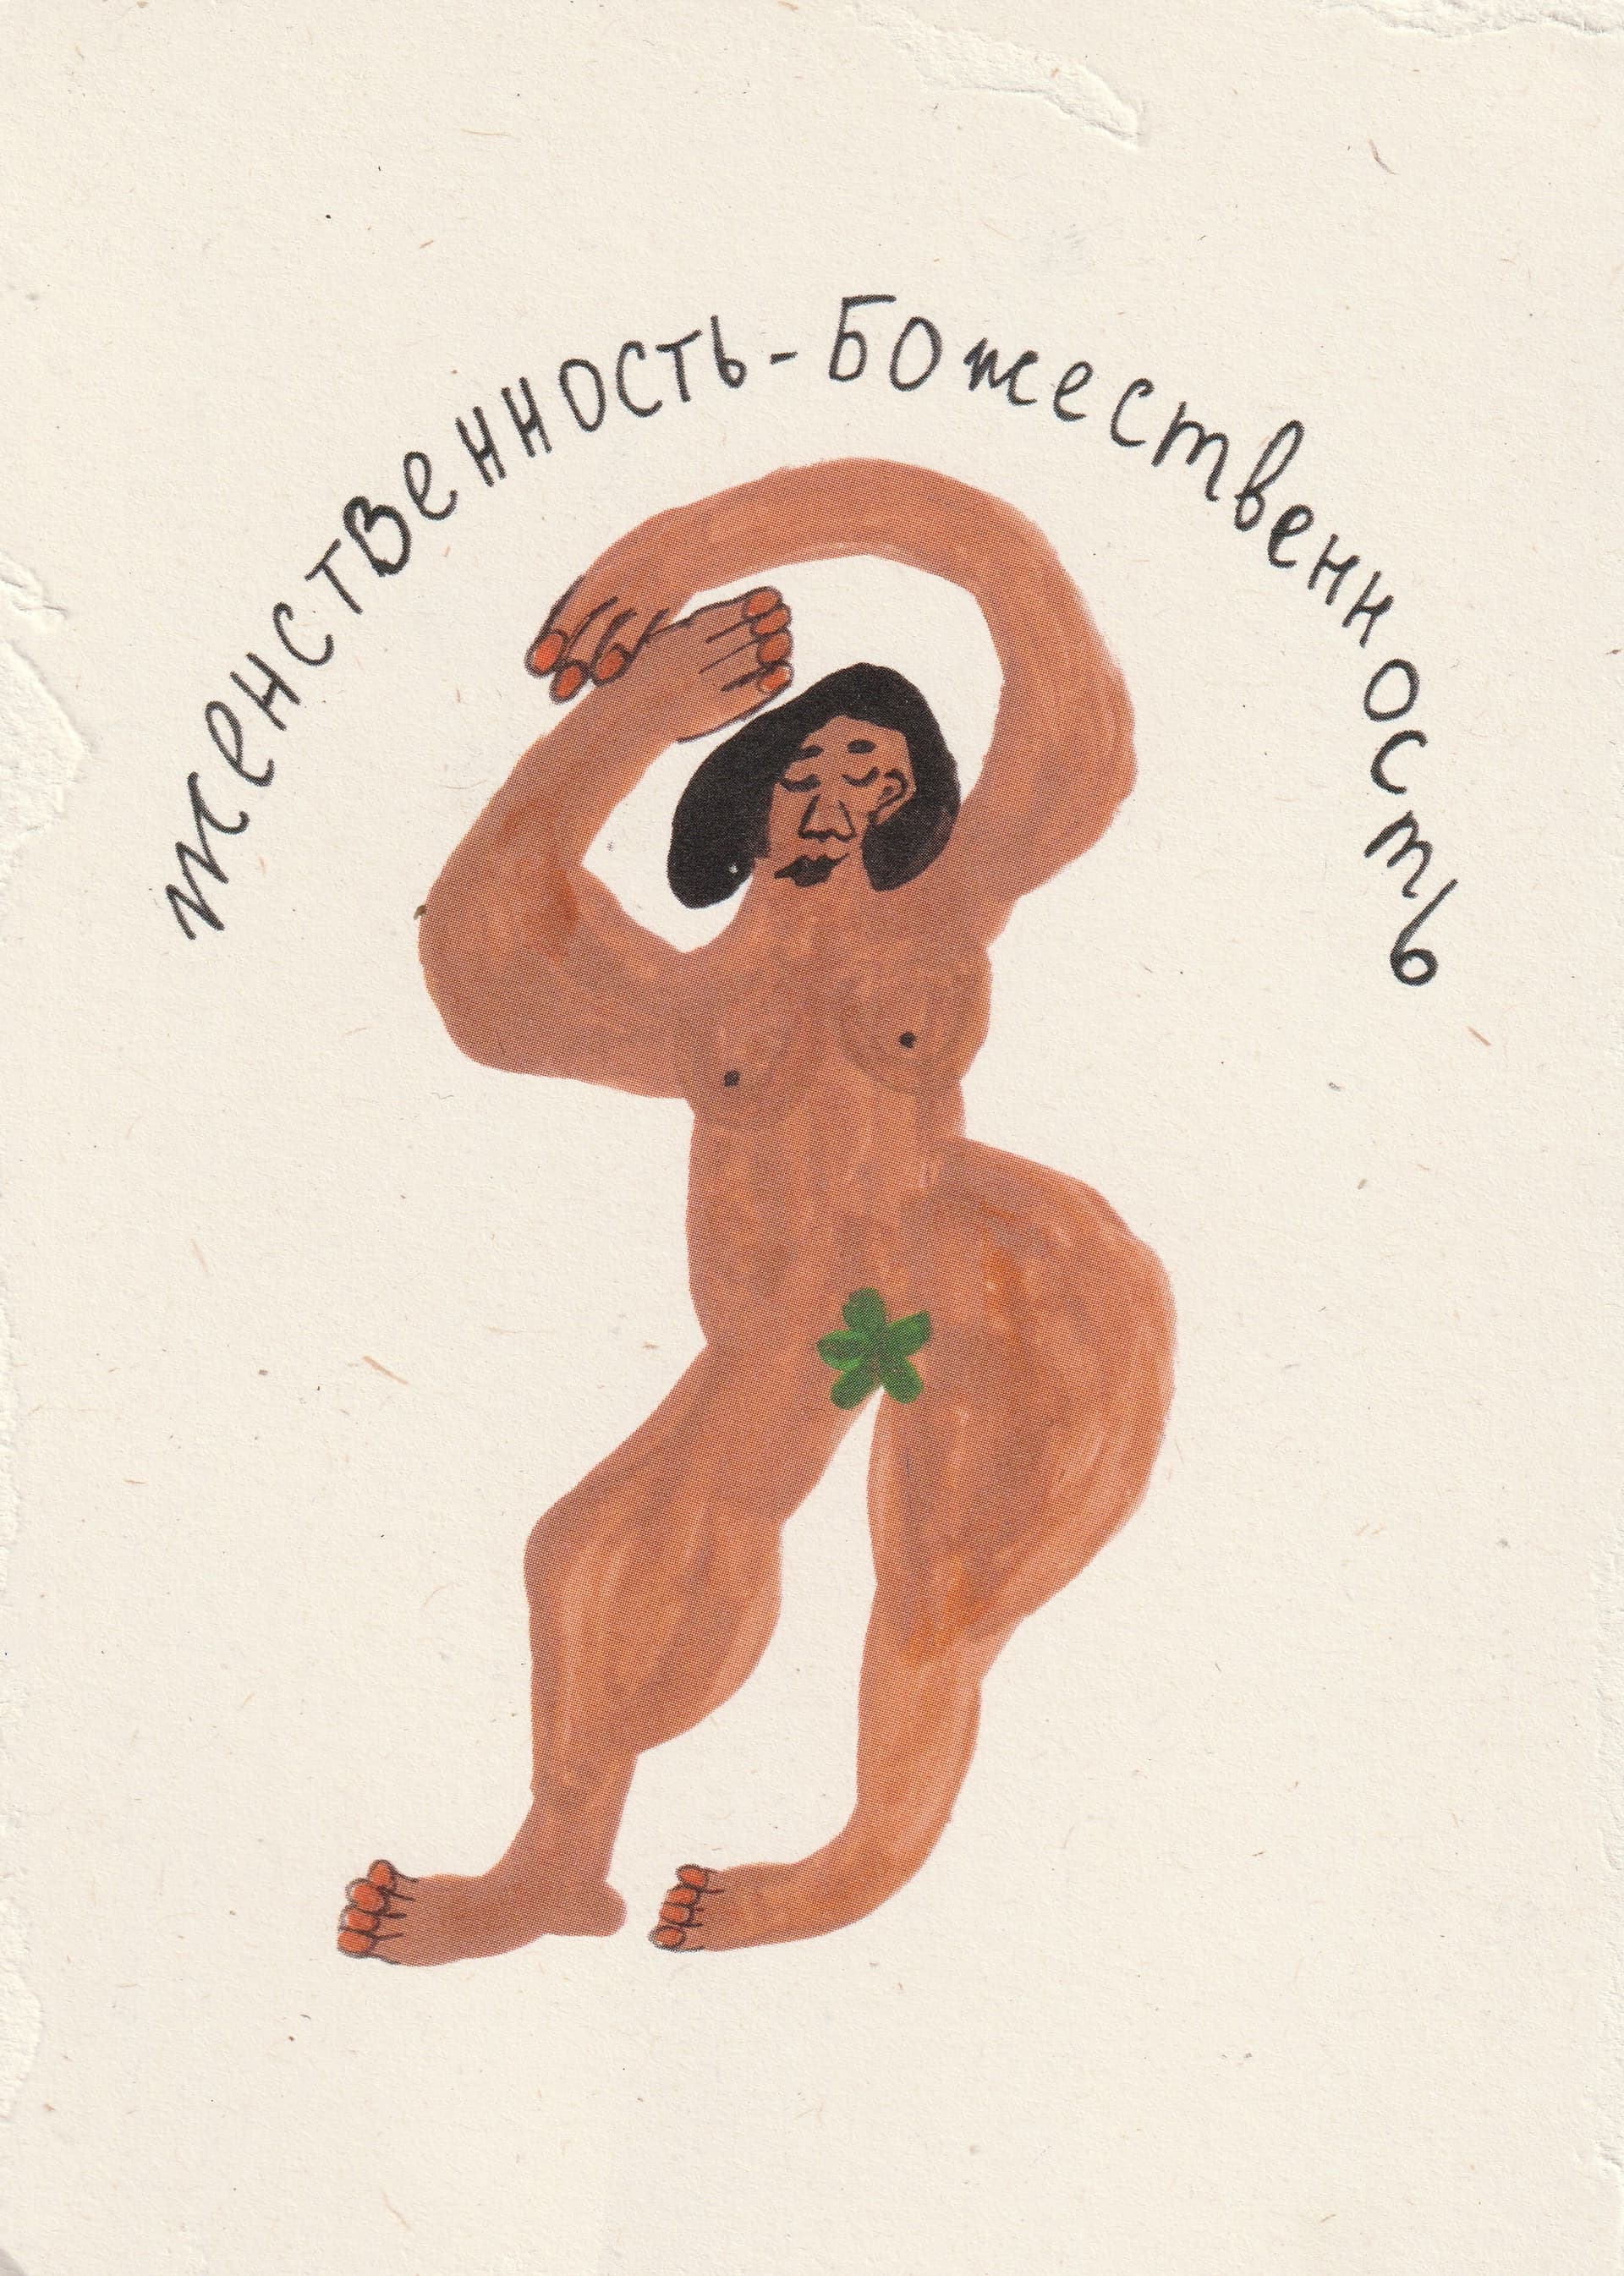 женственность - Божественность